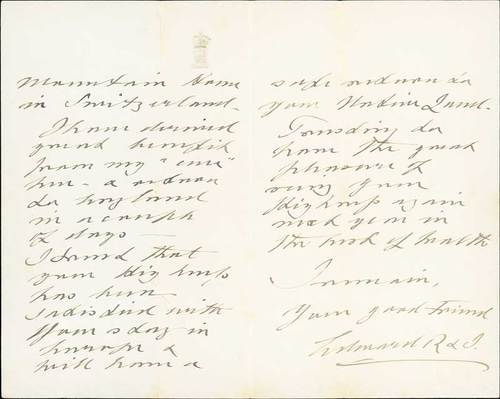 Mountain Home
in Switzerland.
I have derived
great benefit
from my "cure"
here - & return
to England
in a couple
of days -
I trust that
your Highness
has been
satisfied with
Your stay in
Europe &
will have a
safe return to
your Native Land.
Trusting to
have the great
pleasure of
seeing your
Highness again
next year in
the best of health
I remain,
Your good Friend
Edward R & I.